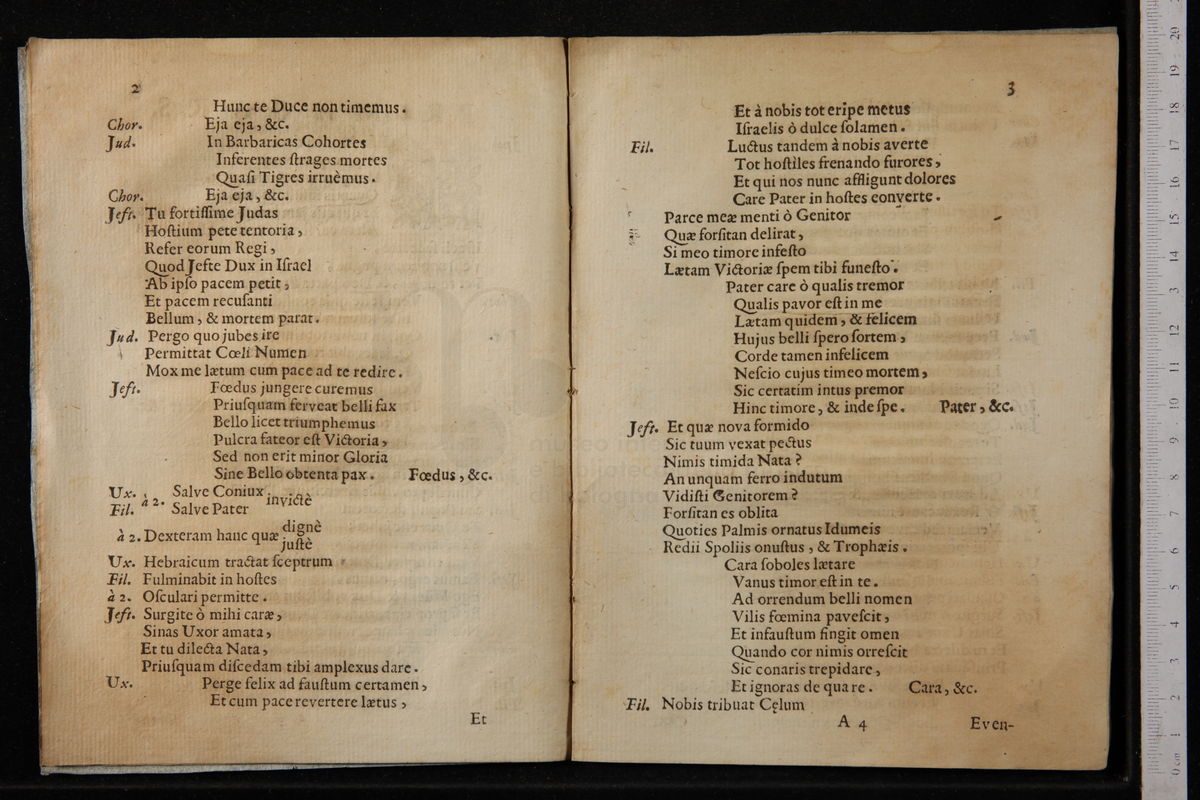 2
Hunc te Duce non timemus.
Chor. Eja eja, &c.
Jud. In Barbaricas Cohortes
Inferentes ſtrages mortes
Quaſi Tigres irruèmus.
Chor. Eja eja, &c.
Jeft. Tu fortiſſime Judas
Hoſtium pete tentoria,
Refer eorum Regi,
Quod Jefte Dux in Iſrael
Ab ipſo pacem petit,
Et pacem recuſanti
Bellum, & mortem parat.
Jud. Pergo quo jubes ire
Permittat Cœli Numen
Mox me lætum cum pace ad te redire.
Jeft. Fœdus jungere curemus
Priuſquam ferveat belli fax
Bello licet triumphemus
Pulcra fateor eſt Victoria,
Sed non erit minor Gloria
Sine Bello obtenta pax. Fœdus, &c.
Ux. Fil. à 2. Salve Coniux Salve Pater invictè
à 2. Dexteram hanc quæ dignè juſtè
Ux. Hebraicum tractat ſceptrum
Fil. Fulminabit in hoſtes
à 2. Oſculari permitte.
Jeft. Surgite ò mihi caræ,
Sinas Uxor amata,
Et tu dilecta Nata,
Priuſquam diſcedam tibi amplexus dare.
Ux. Perge felix ad fauſtum certamen,
Et cum pace revertere lætus,
Et
3
Et à nobis tot eripe metus
Iſraelis ò dulce ſolamen.
Fil. Luctus tandem à nobis averte
Tot hoſtiles frenando furores,
Et qui nos nunc affligunt dolores
Care Pater in hoſtes converte.
Parce meæ menti ò Genitor
Quæ forſitan delirat,
Si meo timore infeſto
Lætam Victoriæ ſpem tibi funeſto.
Pater care ò qualis tremor
Qualis pavor eſt in me
Lætam quidem, & felicem
Hujus belli ſpero ſortem,
Corde tamen infelicem
Neſcio cujus timeo mortem,
Sic certatim intus premor
Hinc timore, & inde ſpe. Pater, &c.
Jeft. Et quæ nova formido
Sic tuum vexat pectus
Nimis timida Nata?
An unquam ferro indutum
Vidiſti Genitorem?
Forſitan es oblita
Quoties Palmis ornatus Idumeis
Redii Spoliis onuſtus, & Trophæis.
Cara ſoboles lætare
Vanus timor eſt in te.
Ad orrendum belli nomen
Vilis fœmina paveſcit,
Et infauſtum fingit omen
Quando cor nimis orreſcit
Sic conaris trepidare,
Et ignoras de qua re. Cara, &c.
Fil. Nobis tribuat Cęlum
A 4 Even-